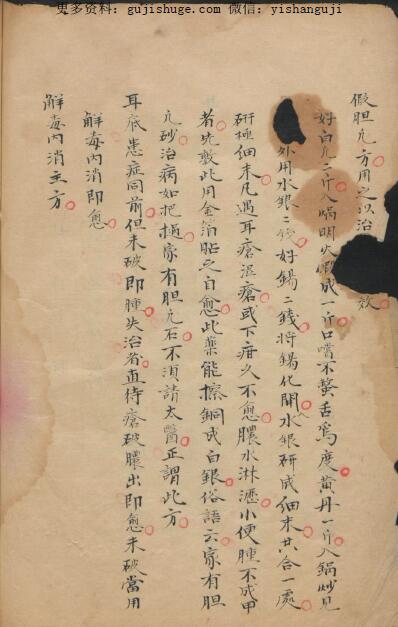 更多资料：gujishuge.com 微信：yishanguji
假胆凡方用之以治 效
好白凡二斤入锅明火煅成一斤口嚐不螫舌為度黄丹一斤入鍋炒見
外用水銀二錢好錫二錢將錫化開水銀研成细末共合一處
研極細末凡遇耳瘡湿瘡或下疳久不愈膿水淋瀝小便腫不成甲
者先敷此用金箔貼之自愈此藥能擦銅成白銀俗語云家有胆
凡砂治病如把抓家有胆凡石不湏請太醫正謂此方
耳底患症同前但未破即腫失治者直待瘡破膿出即愈未破當用
觧毒内消即愈
觧毒内消主方